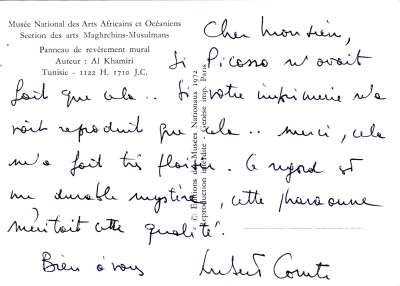 Musée National des Arts Africains et Océaniens
Section des arts Maghrebins-Musulmans
Panneau de revêtement mural
Auteur : Al Khamiri
Tunisie - 1122 H. 1710 J.C.
© Editions des Musées Nationaux 1972
Reproduction interdite - Genèse imp. Paris
Cher Monsieur,
Si Picasso n'avait
fait que cela.. Si votre imprimerie n'a
vait reproduit que cela.. merci, cela
m'a fait très plaisir. Ce regard est
un durable mystère, cette pharaonne
méritait cette qualité.
Bien à vous
Hubert Comte